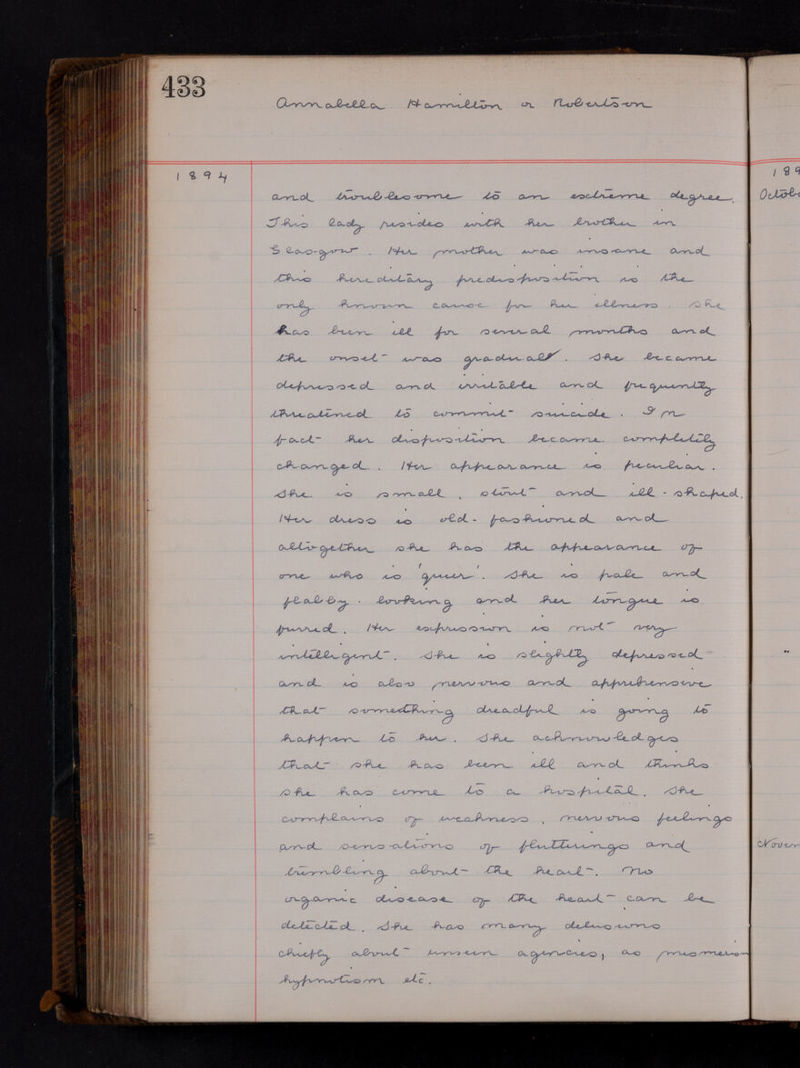 433
Annabella Hamilton or Robertson
1894
and troublesome to an extreme degree.
This lady resides with her brother in
Glasgow. Her mother was insane and
this hereditary predisposition is the
only known cause for her illness. She
has been ill for several months and
the onset was gradual. She became
depressed and irritable and frequently
threatened to commit suicide. In
fact her disposition became completely
changed. Her appearance is peculiar.
She is small, stout and ill-shaped.
Her dress is old-fashioned and
altogether she has the appearance of
one who is 'queer'. She is pale and
flabby-looking and her tongue is
furred. Her expression is not very
intelligent. She is slightly depressed
and is also nervous and apprehensive
that something dreadful is going to
happen to her. She acknowledges
that she has been ill and thinks
she has come to a hospital. She
complains of weakness, nervous feelings
and sensations of flutterings and
trembling about the heart. No
organic disease of the heart can be
detected. She has many delusions
chiefly about unseen agencies, as mesmerism
hypnotism etc.
189
Octob
Novem